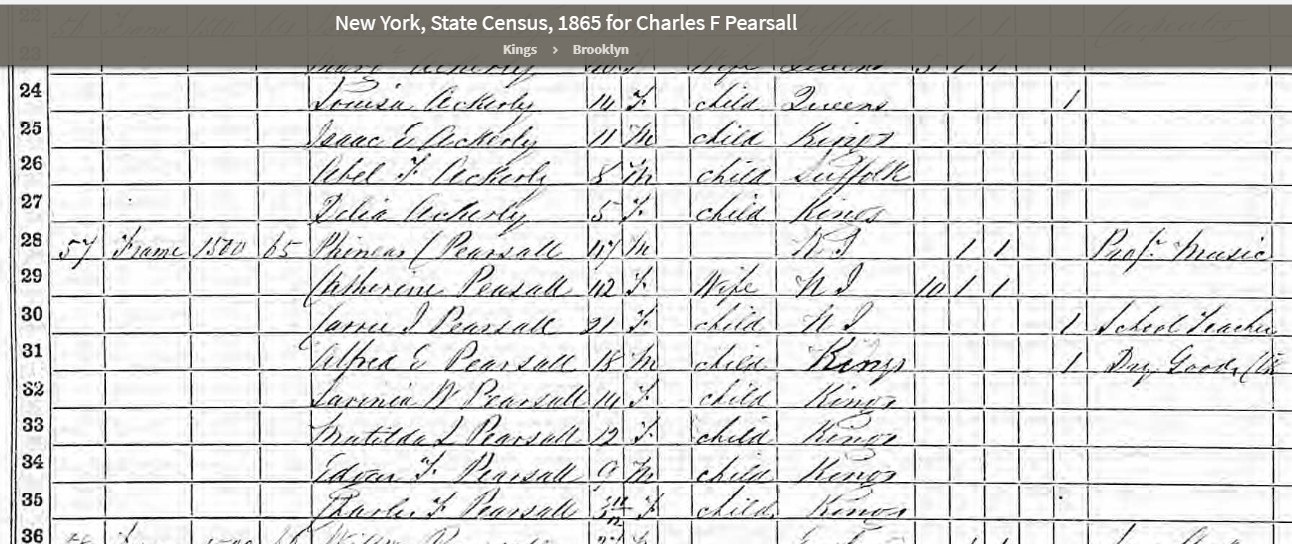 New York, State Census, 1865 for Charles F Pearsall
Kings › Brooklyn
22
23 Ackerly Wife Queens 1 1
24 Louisa Ackerly 14 F. child Queens 1
25 Isaac E Ackerly 11 M child Kings
26 Abel F Ackerly 8 M child Suffolk
27 Delia Ackerly 5 F. child Kings
28 57 Frame 1500 65 Phineas C Pearsall 47 M 1 1 Prof. Music
29 Catherine Pearsall 42 F. Wife 10 1 1
30 Pearsall 21 F. child 1 School Teacher
31 Alfred E Pearsall 18 M child Kings 1 Dry Goods
32 Lavinia W Pearsall 14 F. child Kings
33 Matilda L Pearsall 12 F. child Kings
34 Edgar F. Pearsall 9 M child Kings
35 Charles F Pearsall F child Kings
36